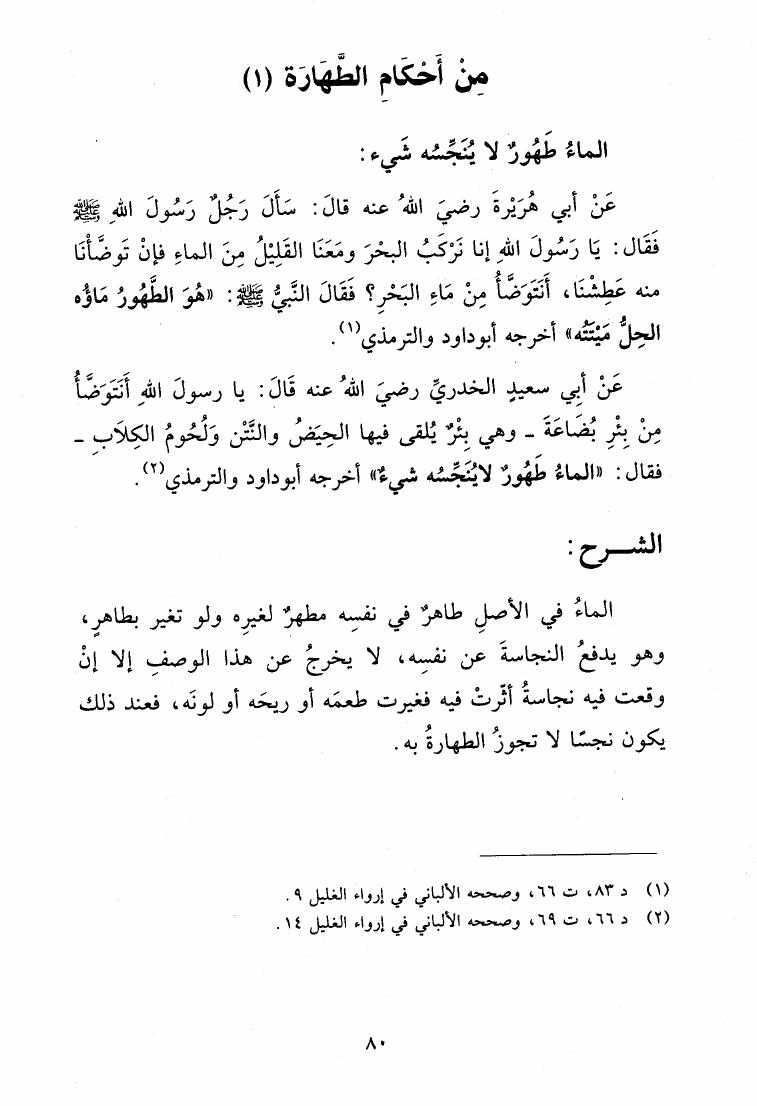 مِنْ أَحْكَامِ الطَّهَارَة (١)
الماءُ طَهُورٌ لا يُنَجِّسُه شَيء :
عَنْ أبي هُرَيْرةَ رضيَ اللهُ عنه قالَ: سَأَلَ رَجُلٌ رَسُولَ اللهِ ﷺ
فَقَال: يَا رَسُولَ اللهِ إنا نَرْكَبُ البحْرَ ومَعَنَا القَلِيْلُ مِنَ الماءِ فإنْ تَوضَّأْنَا
منه عَطِشْنَا، أَنَتَوَضَّأُ مِنْ مَاءِ البَحْرِ؟ فَقَالَ النَّبيُّ ﷺ: «هُوَ الطَّهُورُ مَاؤُه
الحِلُّ مَيْتَتُه» أخرجه أبوداود والترمذي(١).
عَنْ أبي سعيدٍ الخدريِّ رضيَ اللهُ عنه قَالَ: يا رسولَ اللهِ أَنَتَوَضَّأُ
مِنْ بِئْرِ بُضَاعَةَ ـ وهي بِئْرٌ يُلقى فيها الحِيَضُ والنَّتْن وَلُحُومُ الكِلاَبِ ـ
فقال: «الماءُ طَهُورٌ لايُنَجِّسُه شيءٌ» أخرجه أبوداود والترمذي(٢).
الشـــرح :
الماءُ في الأصلِ طاهرٌ في نفسِه مطهرٌ لغيرِه ولو تغير بطاهرٍ،
وهو يدفعُ النجاسةَ عن نفسِه، لا يخرجُ عن هذا الوصفِ إلا إنْ
وقعت فيه نجاسةُ أثّرتْ فيه فغيرت طعمَه أو ريحَه أو لونَه، فعند ذلك
يكون نجسًا لا تجوزُ الطهارةُ به.
(١) د ٨٣، ت ٦٦، وصححه الألباني في إرواء الغليل ٩.
(٢) د ٦٦، ت ٦٩، وصححه الألباني في إرواء الغليل ١٤.
٨٠